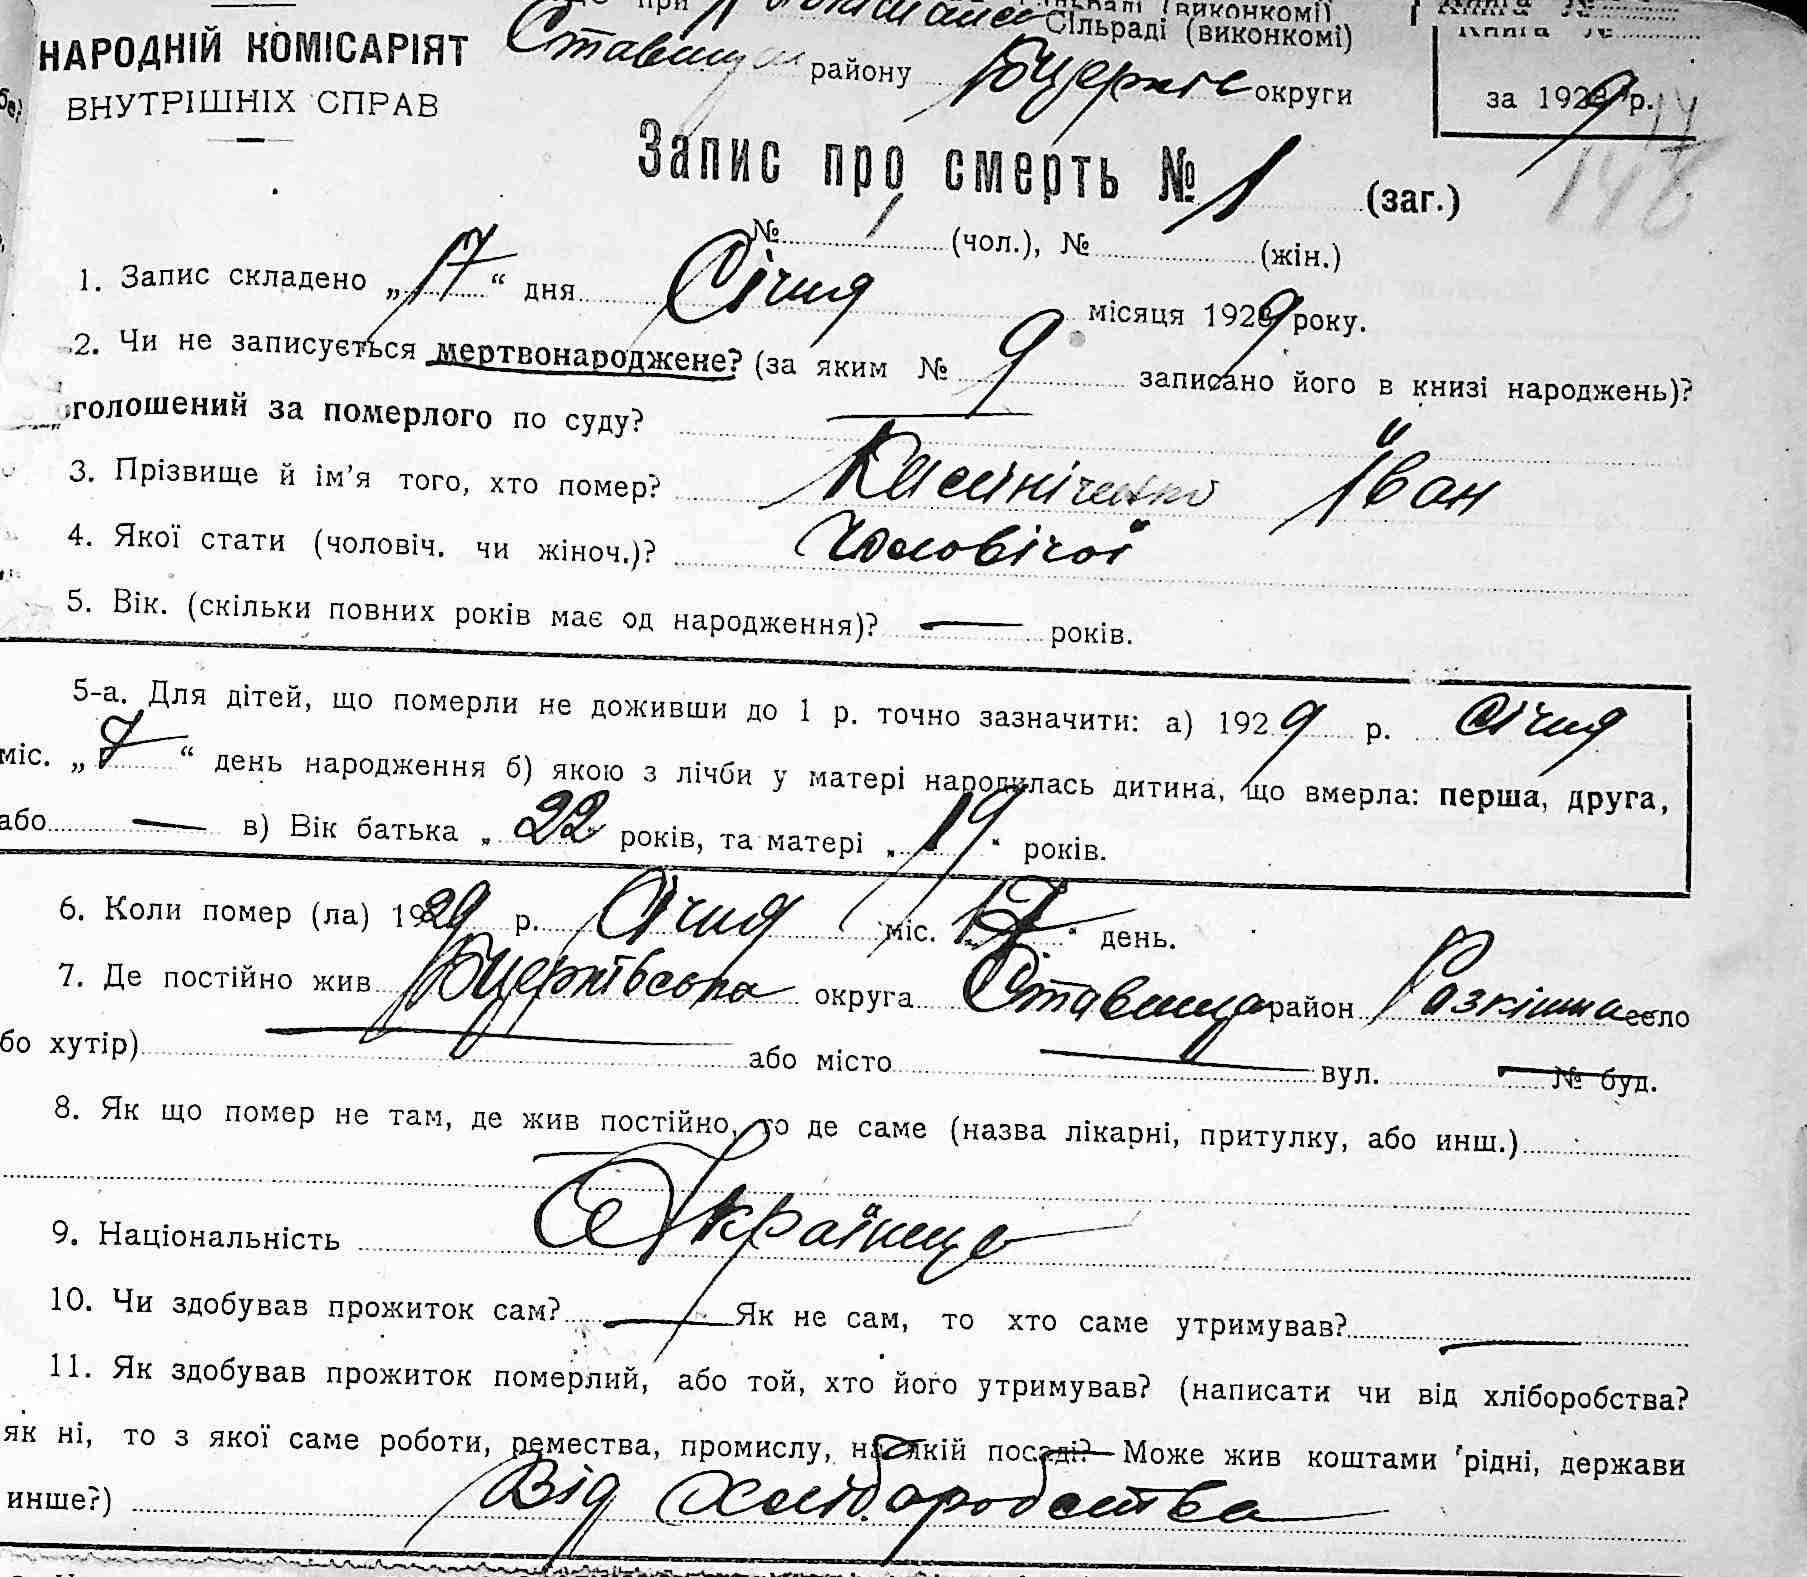 НАРОДНІЙ КОМІСАРІЯТ
ВНУТРІШНІХ СПРАВ
при Сільраді (виконкомі)
Ставищ району Бцерків округи
Книга №
за 1929 р.
148
Запис про смерть № 1 (заг.)
№ 1 (чол.), № (жін.)
1. Запис складено „17“ дня Січня місяця 1929 року.
2. Чи не записується мертвонароджене? (за яким № 9 записано його в книзі народжень)?
оголошений за померлого по суду? —
3. Прізвище й ім’я того, хто помер? Іван
4. Якої стати (чоловіч. чи жіноч.)? Чоловічої
5. Вік. (скільки повних років має од народження)? — років.
5-а. Для дітей, що померли не доживши до 1 р. точно зазначити: а) 1929 р. Січня
міс. „7“ день народження б) якою з лічби у матері народилась дитина, що вмерла: перша, друга,
або — в) Вік батька „22 років, та матері „19“ років.
6. Коли помер (ла) 1929 р. Січня міс. 17“ день.
7. Де постійно жив Бцерківська округа Ставища район Розкішна село
бо хутір) — або місто — вул. — № буд.
8. Як що помер не там, де жив постійно, то де саме (назва лікарні, притулку, або инш.)
9. Національність Українець
10. Чи здобував прожиток сам? — Як не сам, то хто саме утримував? —
11. Як здобував прожиток померлий, або той, хто його утримував? (написати чи від хліборобства?
як ні, то з якої саме роботи, ремества, промислу, на якій посаді? Може жив коштами рідні, держави
инше?) Від хліборобства